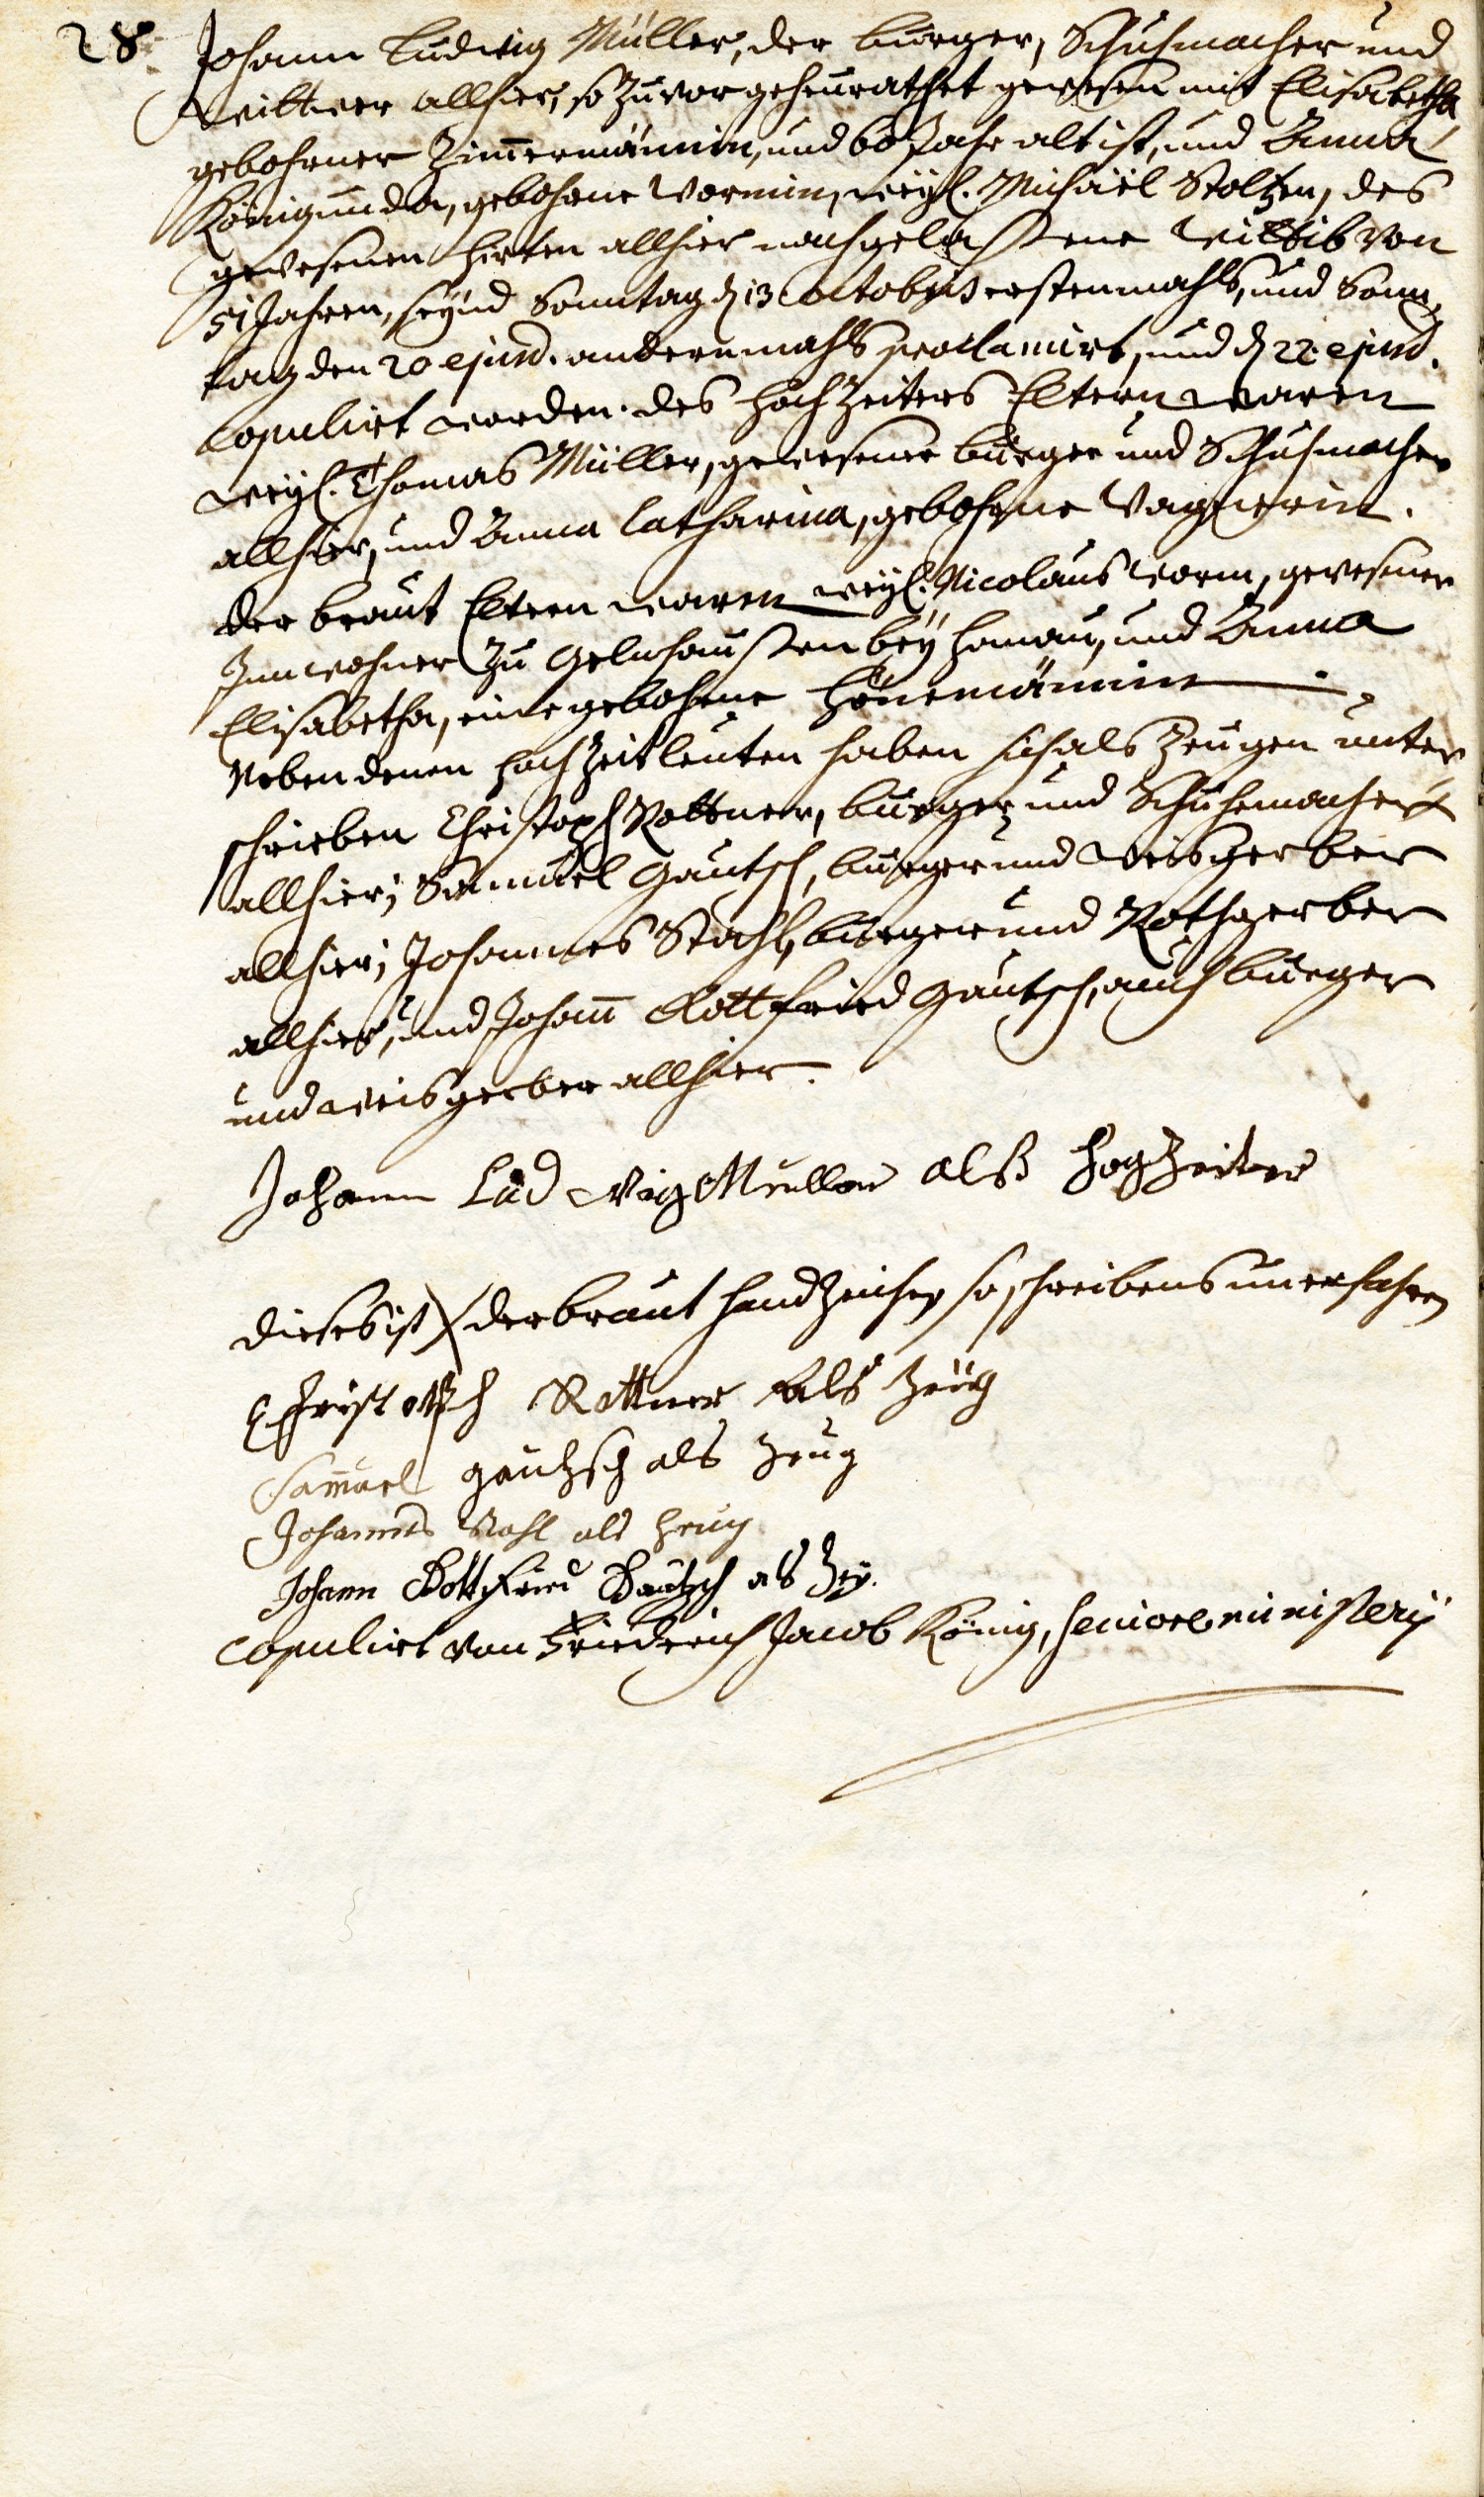 28. Johann Ludwig Müller, der burger, Schuhmacher und
Wittwer allhier, so zuvor geheurathet gewesen mit Elisabetha
gebohrner Zimmermännin, und 60 Jahr alt ist, und Anna
Künigunda, gebohrne Wormin, weyl. Michaël Stoltzen, des
gewesenen hirten allhier nachgelassene Wittib von
51 Jahren, seynd Sonntag d 13 octobris erstenmahls, und Sonn,
tag den 20 ejusd. andernmahls proclamirt, und d 22. ejusd.
copulirt worden. des hochzeiters Eltern waren
weyl. Thomas Müller, gewesener burger und Schuhmacher
allhier, und Anna Catharina, gebohrne Wagnerin.
der braut Eltern waren weyl. Nicolaus Worm, gewesener
Innwohner zu Gelnhaussen bey hanau, und Anna
Elisabetha, eine gebohrne Hönemännin
Neben denen hochzeitleuten haben sich als Zeugen unter
schrieben Christoph Rottner, burger und Schuhmacher
allhier; Samuel Gautsch, burger und Weisgerber
allhier; Johannes Stahl, burger und Rothgerber
allhier, und Johann Gottfried Gautsch, auch burger
und weisgerber allhier.
Johann Lud wig Müller alß Hogzeiter
dieses ist X der braut handzeichen so schreibens unerfahren
Christoph Rottner als Zeüg
Samuel gautzsch als Zeug
Johannes Stahl als Zeug
Johann Gottfried Gautzsch als Zeg.
copulirt von Friedrich Jacob König, Seniore ministerij